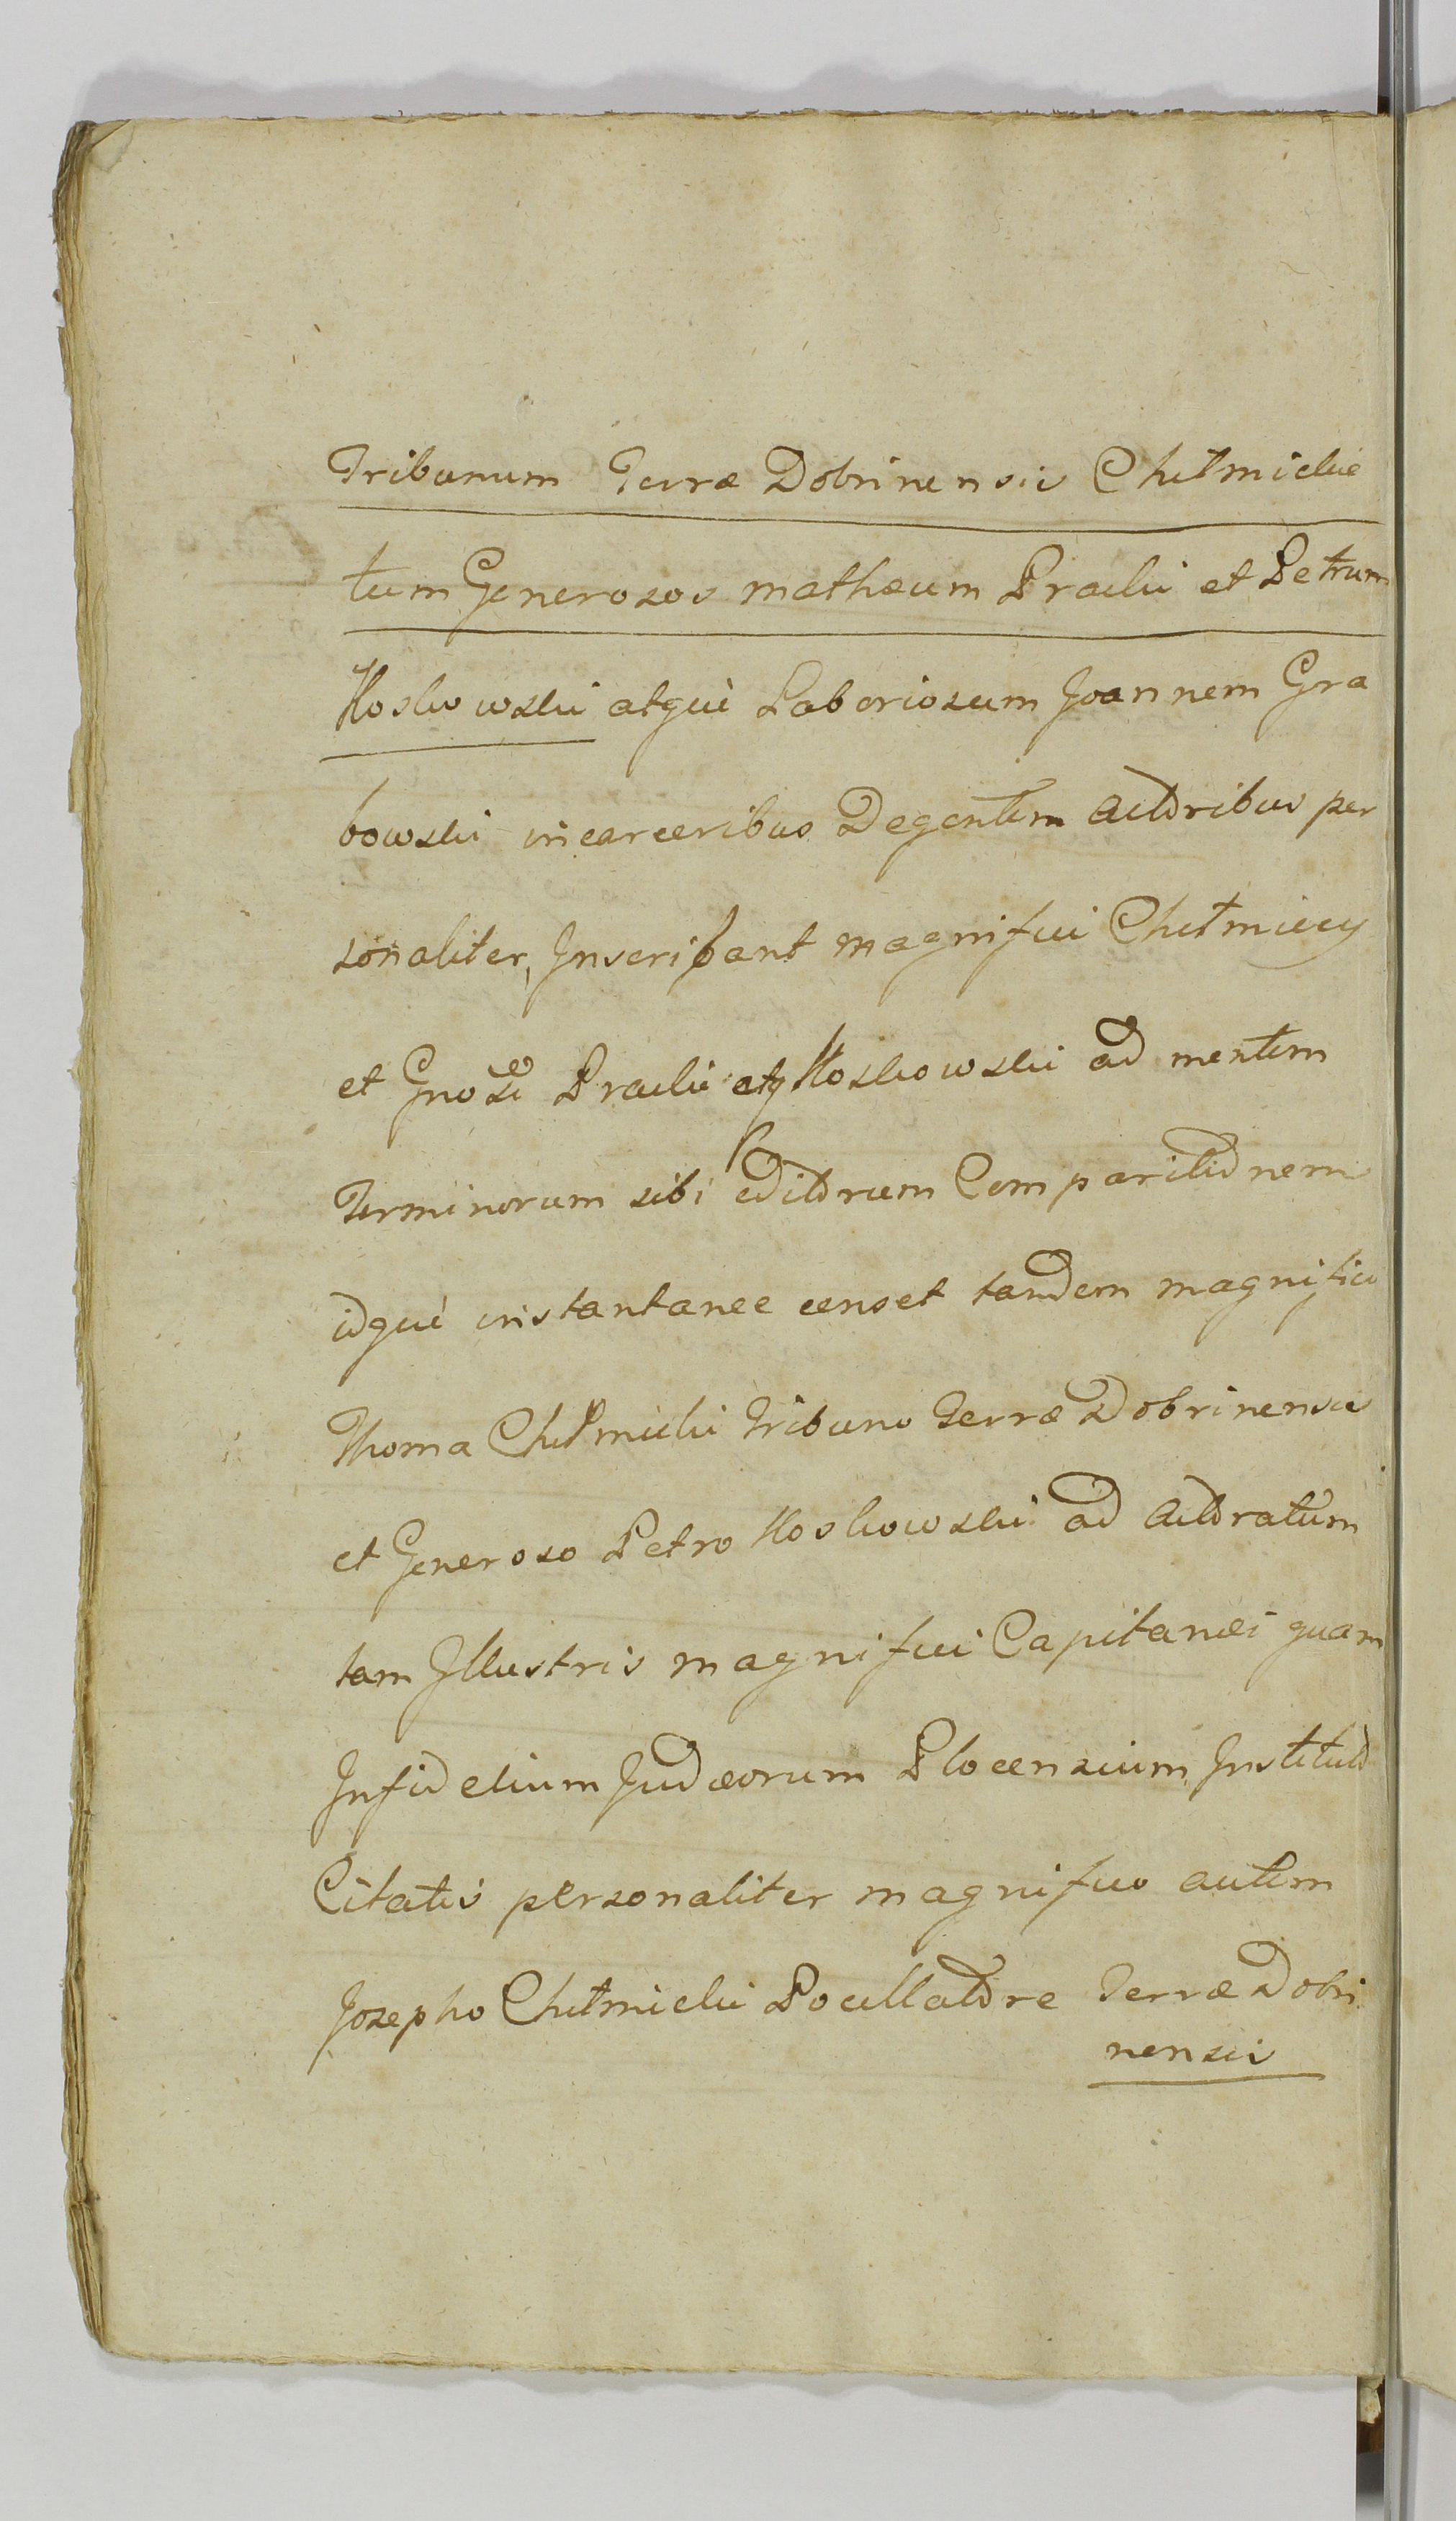 Tribunum Terræ Dobrinensis Chełmickie
tum Generosos mathæum Pracki et Petrum
Koskowski atquè Laboriosum Joannem Gra
bowski in carceribus Degentem Actoribus per
sonaliter, Inscribant magnifici Chełmiccy
et Gnosi Pracki atq Koskowski ad mentem
Terminorum sibi editorum Comparitionem
idquè instantanee censet tandem magnifico
Thoma Chełmicki Tribuno Terræ Dobrinensis
et Generoso Petro Koskowski ad Actoratum
tam Illustris magnifici Capitanei quam
Infidelium Judæorum Plocensium, Instituto
Citatis personaliter magnifico autem
Josepho Chełmicki Pocillatore Terræ Dobri
nensis